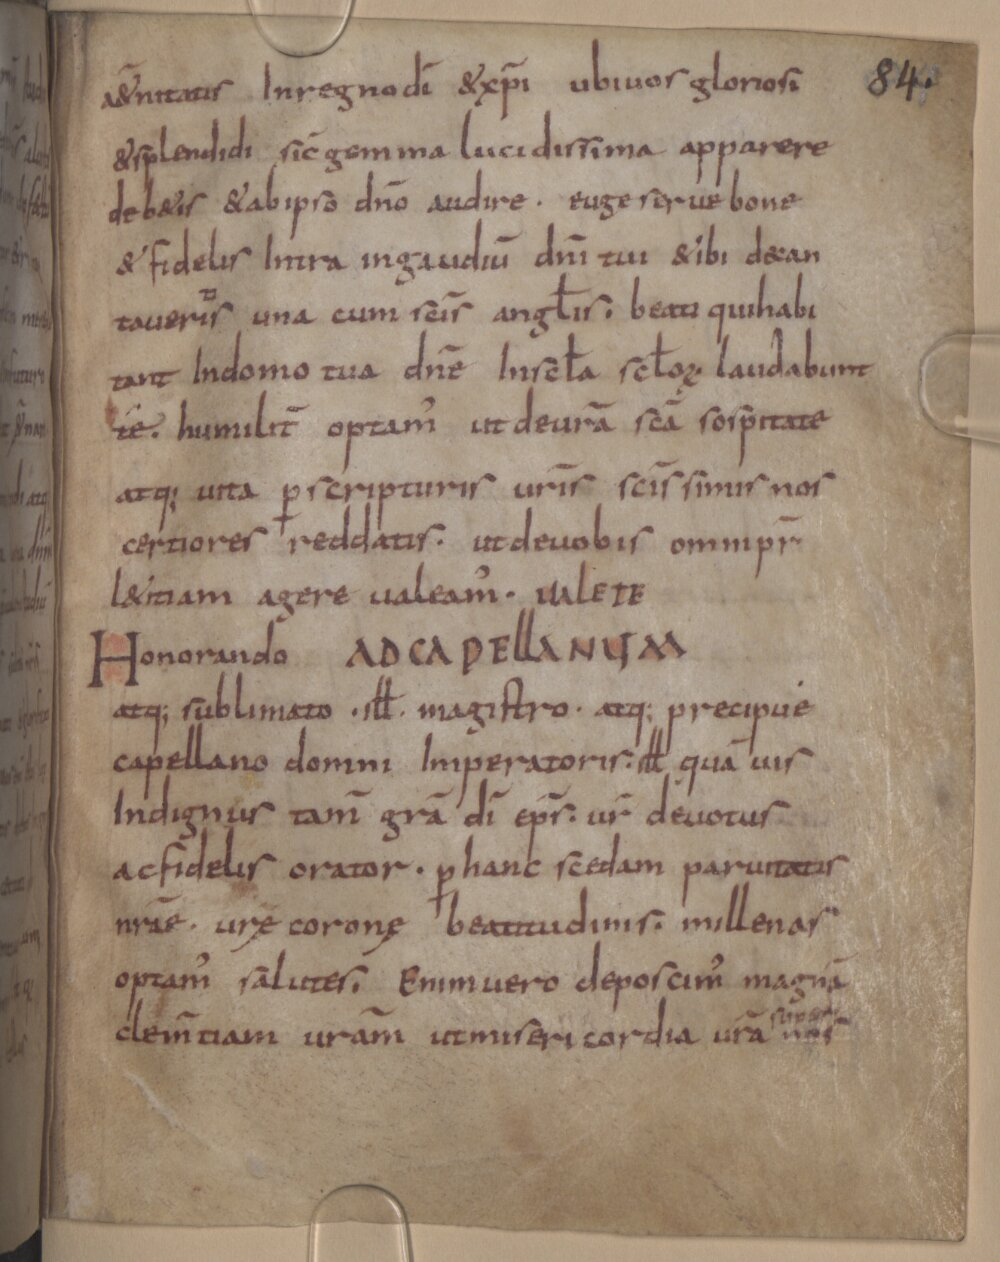 84.
a&̄nitatis In regno dī & xp̄i ubi uos gloriosi
& splendidi sic̄ gemma lucidissima apparere
deb&is & ab ipso dn̄o audire. euge serue bone
& fidelis Intra in gaudiū dn̄i tui & ibi decan
taueritis una cum sc̄is angłis. beati qui habi
tant In domo tua dn̄e In sc̄ła scłoꝝ laudabunt
te. humilit̄ optam' ut de ur̄a sc̄a sospitate
atq; uita ꝑ scripturis ur̄is sc̄issimis nos
certiores reddatis. ut de uobis omnipr̄
l&itiam agere ualeam'. UALETE
Honorando AD CAPELLANUM
atq; sublimato .ıłł. magistro. atq; precipue
capellano domni Imperatoris. ıłł quāuis
Indignus tam̄ gr̄a dī ep̄s. ur̄ deuotus
ac fidelis orator. ꝑ hanc scedam paruitatis
nr̄ae. ur̄ę coronę beatitudinis. millenas
optam' salutes. Enim uero deposcim' magnā
clem̄tiam ur̄am ut misericordia ur̄a super nos